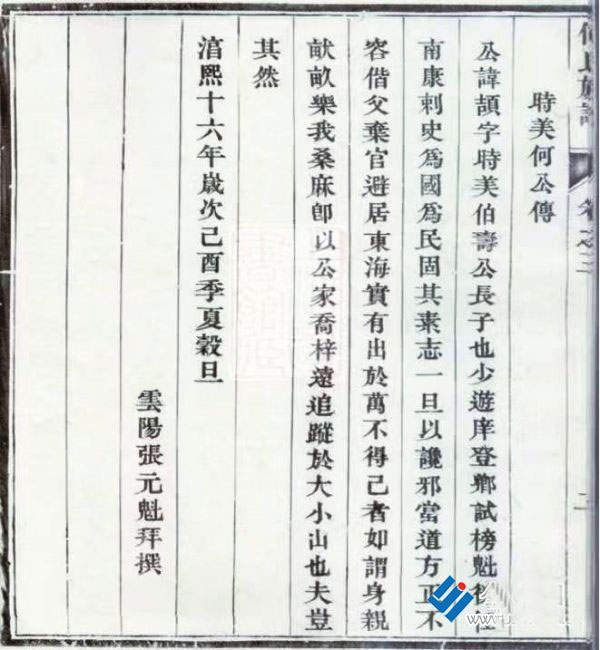 何氏族譜
卷之三
二
時美何公傳
公諱頡字時美伯壽公長子也少遊庠登鄉試榜魁後任
南康刺史爲國爲民固其素志一旦以讒邪當道方正不
容偕父棄官避居東海實有出於萬不得已者如謂身親
畎畝樂我桑麻卽以公家喬梓遠追蹤於大小山也夫豈
其然
淳熙十六年歲次己酉季夏穀旦
雲陽張元魁拜撰